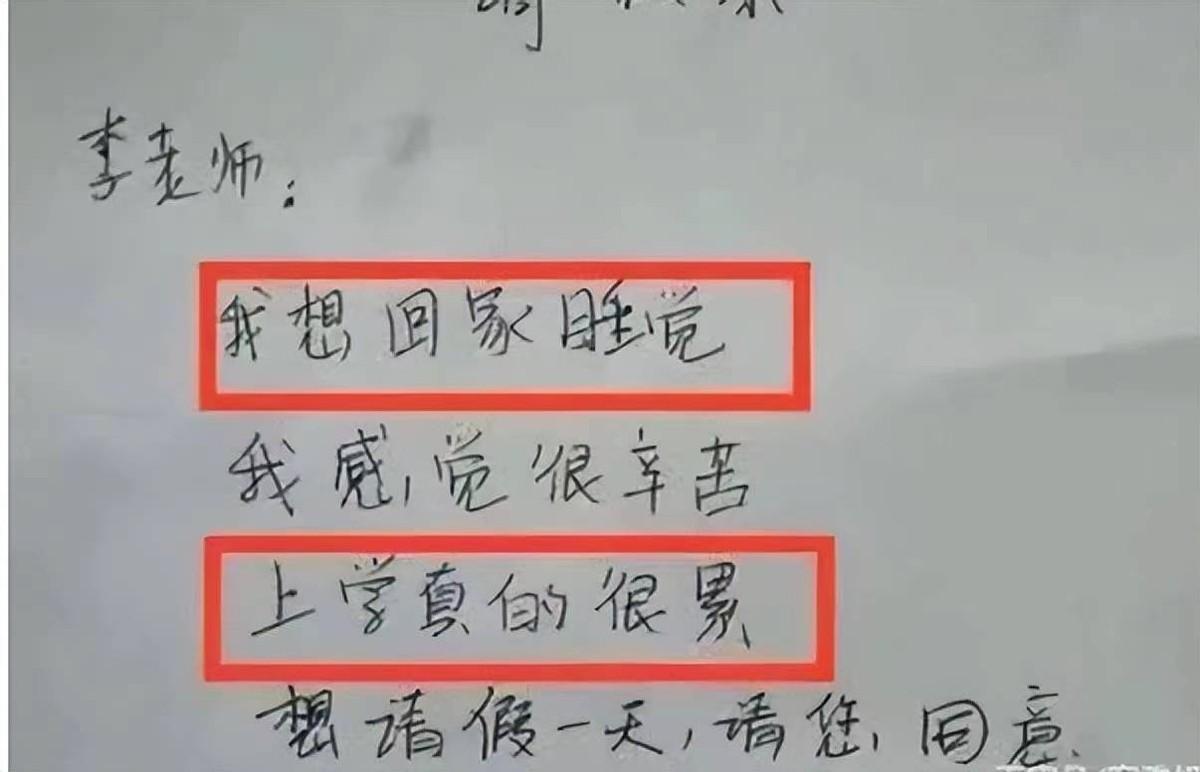 李老师:
我想回家睡觉
我感觉很辛苦
上学真的很累
想请假一天,请您同意